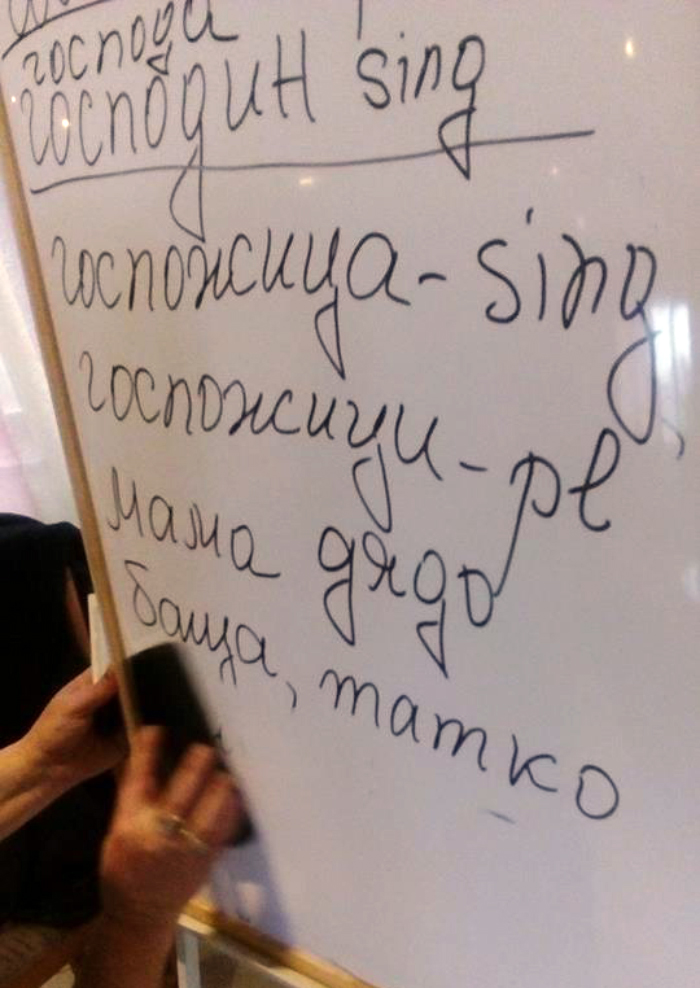 господа
господин sing
госпожица - sing
госпожици - pl
мама дядо
баща, татко